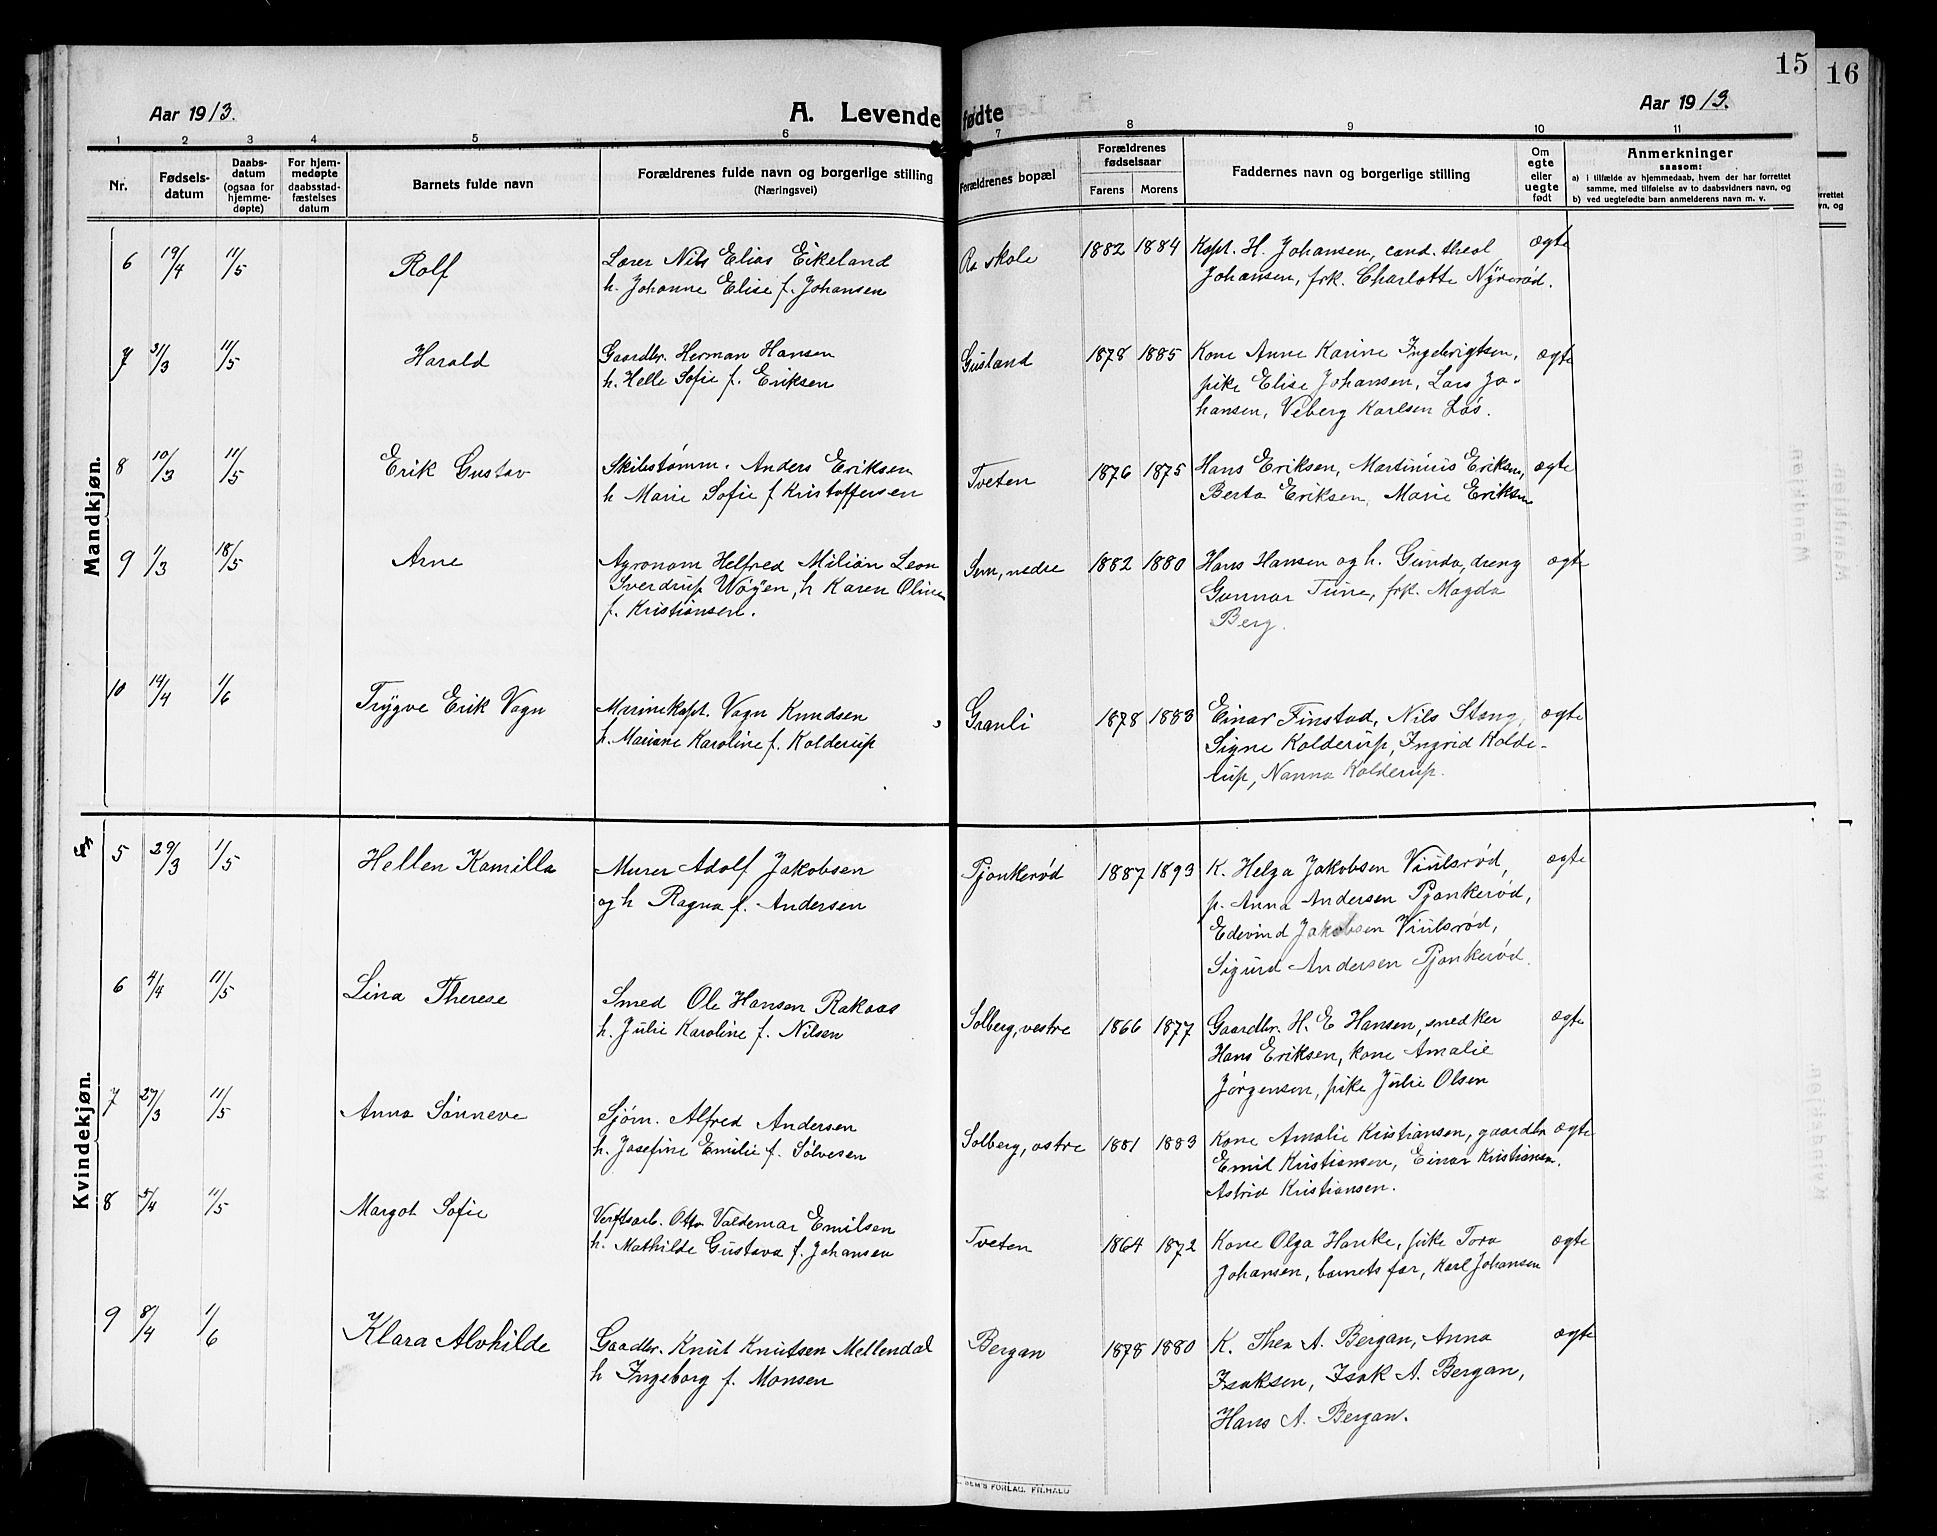 15
16
Aar 1913.
A. Levende fødte
Aar 1913.
1 2 3 4 5 6 7 8 9 10 11
Nr.
Fødsels-
datum
Daabs-
datum
(ogsaa for
hjemme-
døpte)
For hjem-
medøpte
daabsstad-
fæstelses
datum
Barnets fulde navn
Forældrenes fulde navn og borgerlige stilling
(Næringsvei)
Forældrenes bopæl
Forældrenes
fødselsaar
Farens Morens
Faddernes navn og borgerlige stilling
Om
egte
eller
uegte
født
Anmerkninger
saasom:
a) i tilfælde av hjemmedaab, hvem der har forrettet
samme, med tilføielse av to daabsvidners navn, og
b) ved uegtefødte barn anmelderens navn m. v.
Mandkjøn.
6 19/4 11/5 Rolf Lærer Nils Elias Eikeland Ra skole 1882 1884 Kapt. H. Johansen, cand. theol ægte
h. Johanne Elise f. Johansen Johansen, frk. Charlotte Nyverød.
7 31/3 11/5 Harald Gaardbr. Herman Hansen Gusland 1878 1885 Kone Anne Karine Ingebrigtsen, ægte
h. Helle Sofie f. Eriksen pike Elise Johansen, Lars Jo-
hansen, Veberg Karlsen Løs.
8 10/3 11/5 Erik Gustav Skibstømm. Anders Eriksen Tveten 1876 1875 Hans Eriksen, Martinius Eriksen, ægte
h Marie Sofie f Kristoffersen Berta Eriksen, Marie Eriksen
9 1/3 18/5 Arne Agronom Helfred Milian Leon Sem, nedre 1882 1880 Hans Hansen og h. Gunda, dreng ægte
Sverdrup Wøyen, h Karen Oline Gunnar Tune, frk. Magda
f. Kristiansen. Berg.
10 14/4 1/6 Trygve Erik Vagn Marinekapt. Vagn Knudsen Granli 1878 1883 Einar Finstad, Nils Stang, ægte
h. Mariane Karoline f. Kolderup Signe Kolderup, Ingrid Kolde-
rup, Nanna Kolderup.
Kvindekjøn.
5 29/3 1/5 Hellen Kamilla Murer Adolf Jakobsen Pjonkerød 1887 1893 K. Helga Jakobsen Viulsrød, ægte
og h Ragna f. Andersen p. Anna Andersen Pjonkerød,
Edevind Jakobsen Viulsrød,
Sigurd Andersen Pjonkerød.
6 4/4 11/5 Lina Therese Smed Ole Hansen Rakaas Solberg, vestre 1866 1877 Gaardbr. H. E Hansen, snedker ægte
h. Julie Karoline f. Nilsen Hans Eriksen, kone Amalie
Jørgensen, pike Julie Olsen
7 27/3 11/5 Anna Sønneve Sjøm. Alfred Andersen Solberg, østre 1881 1883 Kone Amalie Kristiansen, gaardbr ægte
h. Josefine Emilie f. Sølvesen Emil Kristiansen, Einar Kristiansen.
Astrid Kristiansen.
8 5/4 11/5 Margot Sofie Verftsarb. Otto Valdemar Emilsen Tveten 1864 1872 Kone Olga Hanke, pike Tora ægte
h. Mathilde Gustava f. Johansen Johansen, barnets far, Karl Johansen
9 8/4 1/6 Klara Alvhilde Gaardbr. Knut Knutsen Mellendal Bergan 1878 1880 K. Thea A. Bergan, Anna ægte
h Ingeborg f. Monsen Isaksen, Isak A. Bergan,
Hans A. Bergan.
SEM'S FORLAG, FR.HALD